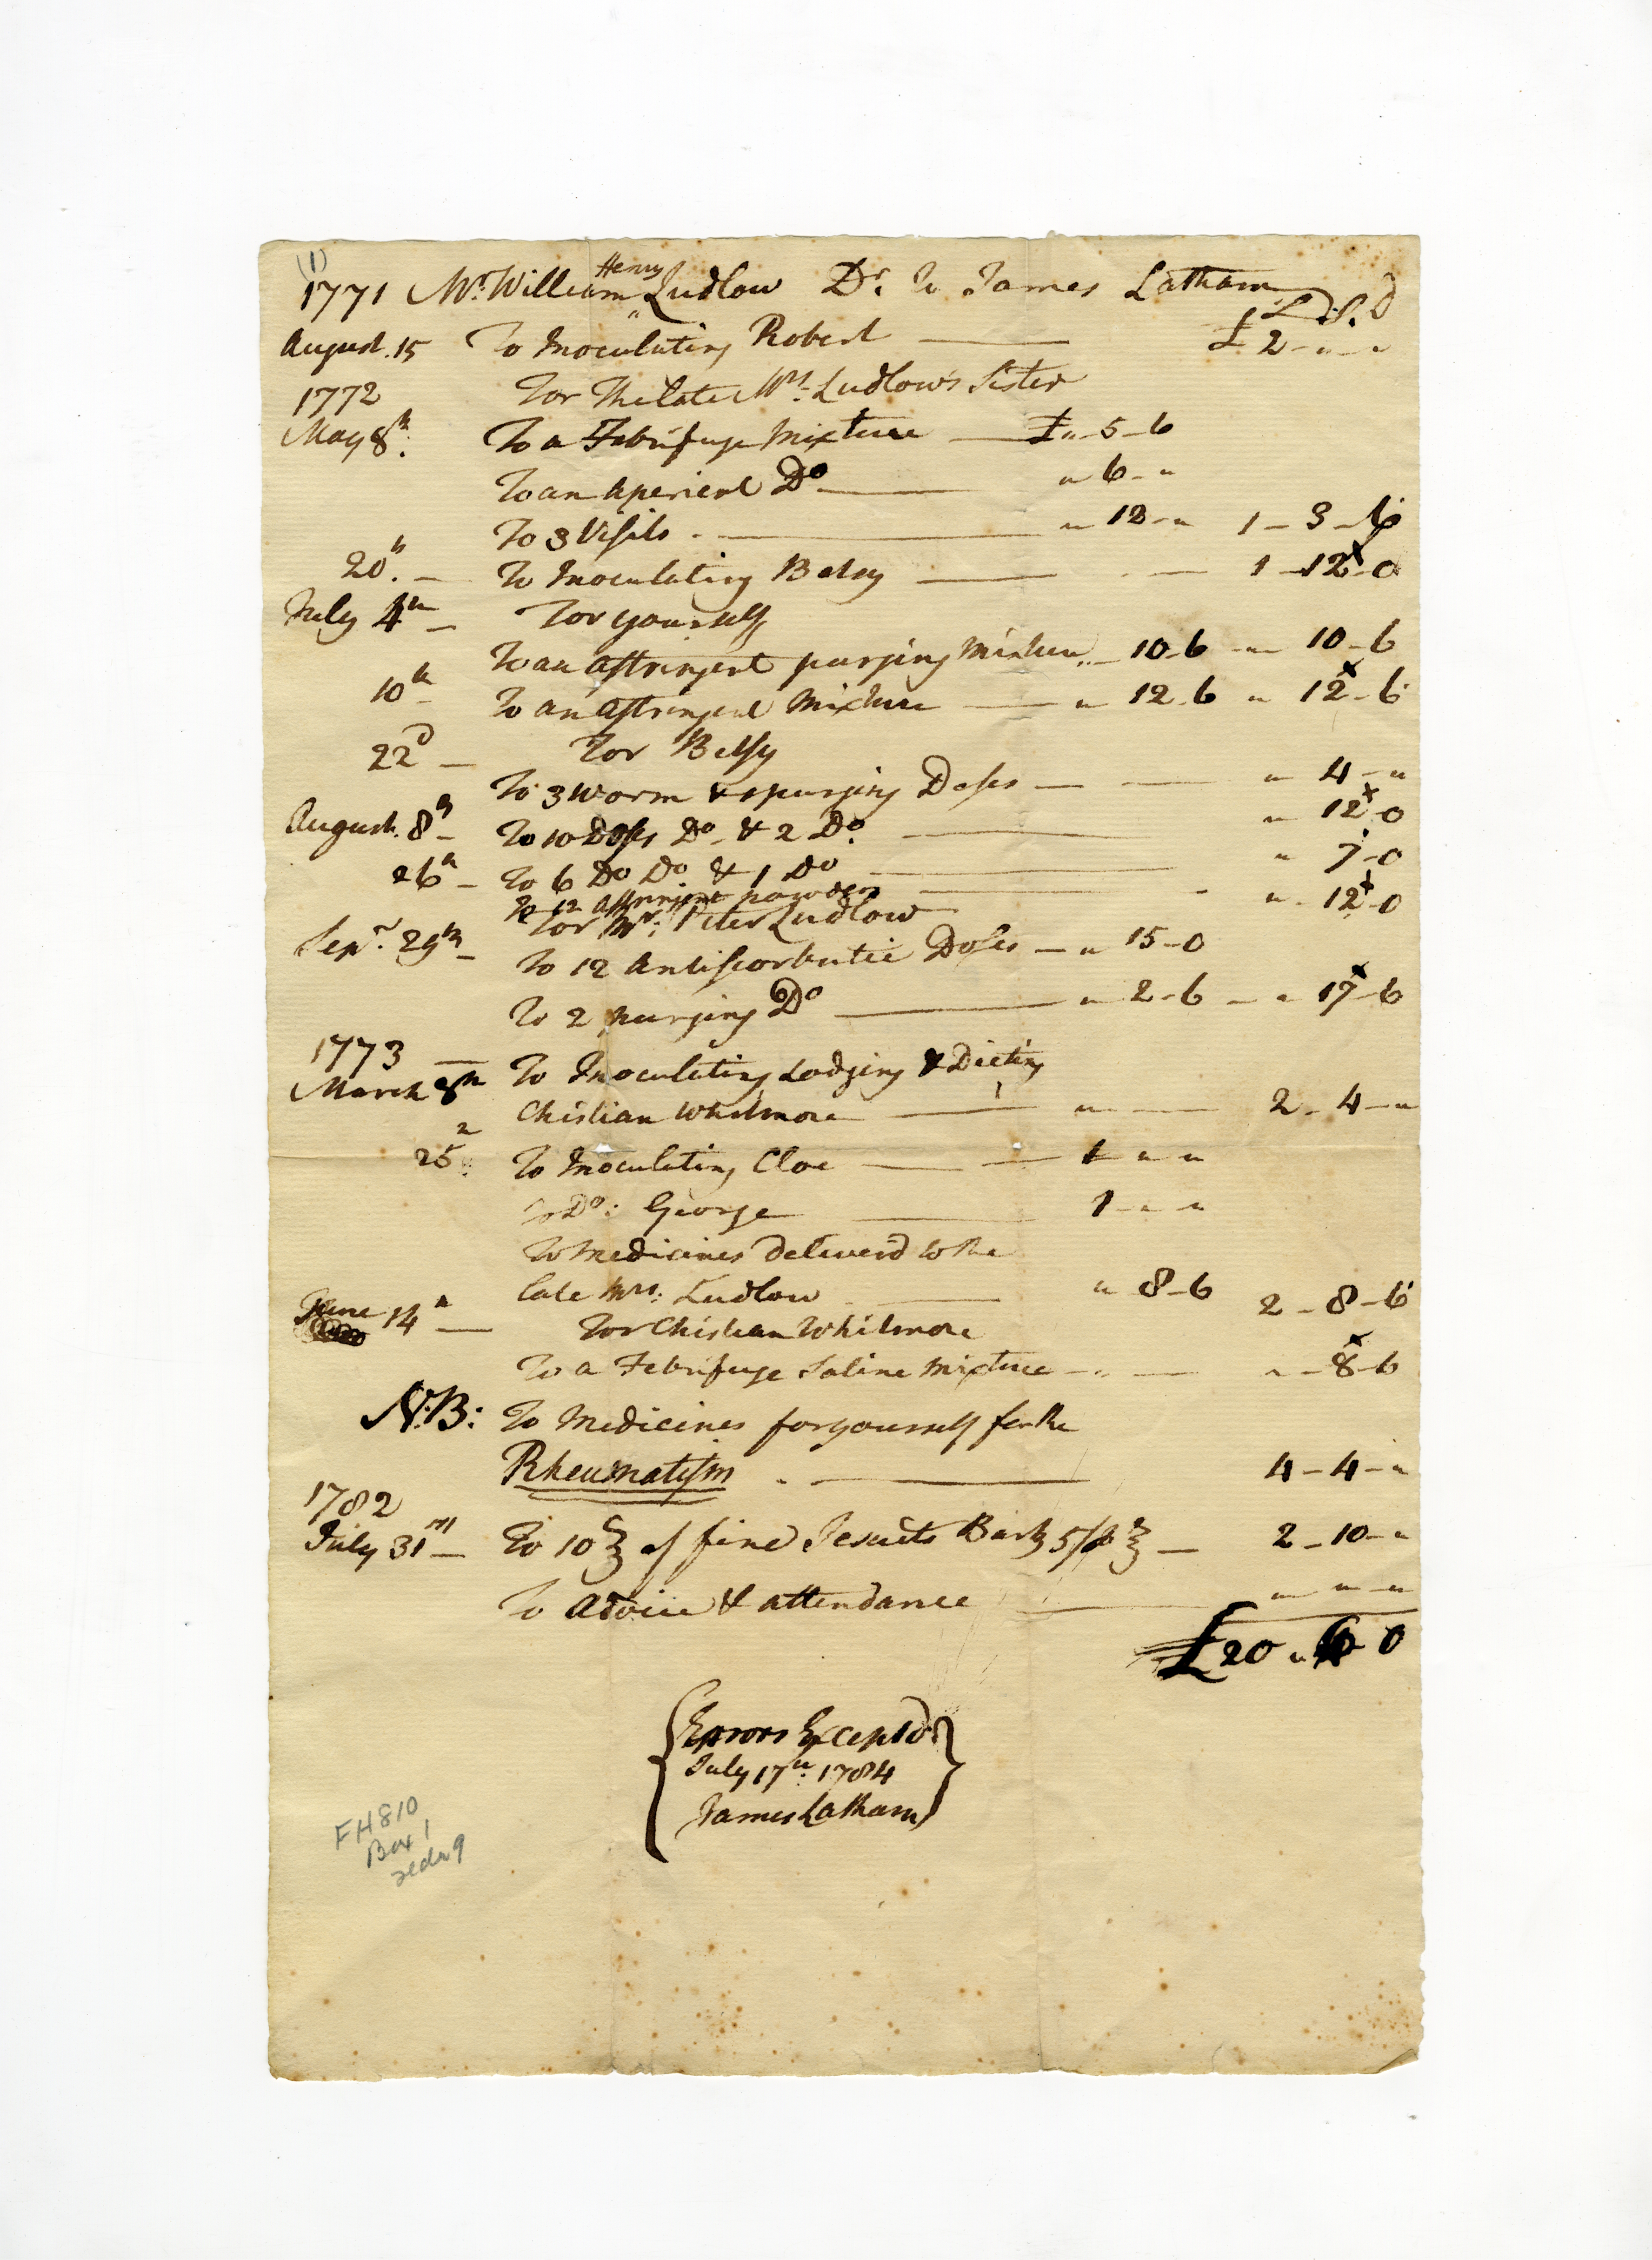 (1)
Henry
1771 Mr. William " Ludlow Dr. To James Latham
£ S. D
August. 15 To Inoculating Robert £ 2 - " - "
1772 For The late Mrs. Ludlow's Sister
May 8th. To a Febrifuge Mixture £ " - 5 - 6
To an Aperient Do " 6 - "
To 3 Visits - " 12 - " 1 - 3 - 6
20th. To Inoculating Betsy 1 - 12 - 0
July 4th For yourself
To an astringent purging Mixture " 10 - 6 " 10 - 6
10th To an astringent Mixture " 12 - 6 " 12 - 6
22d For Betsy
To 3 worm & purging Doses " 4 - "
August. 8th To 10 Doses Do & 2 Do. " 12 - 0
26th To 6 Do Do & 1 Do " 7 - 0
To 12 astringent powders " 12 - 0
Sepr. 29th For Mr. Peter Ludlow
To 12 Antiscorbutic Doses " 15 - 0
To 2 purging Do " 2 - 6 " 17 - 6
1773
March 8th To Inoculating Lodging & Dieting
Chistian Whitmore 2 - 4 - "
25th To Inoculating Cloe 1 " "
To Do: George 1 - " "
To Medicines deliverd to the
late Mrs. Ludlow " 8 - 6 2 - 8 - 6
June 14th For Chistian Whitmore
To a Febrifuge Saline Mixture " - 8 - 6
N:B: To Medicines for yourself for the
Rheumatism 4 - 4 - "
1782
July 31st To 10 ℥ of fine Jesuits Bark 5/ ℘ ℥ 2 - 10 - "
To advice & attendance " " "
£ 20 " 0
Errors Excepted
July 17th: 1784
James Latham
FH810
Box 1